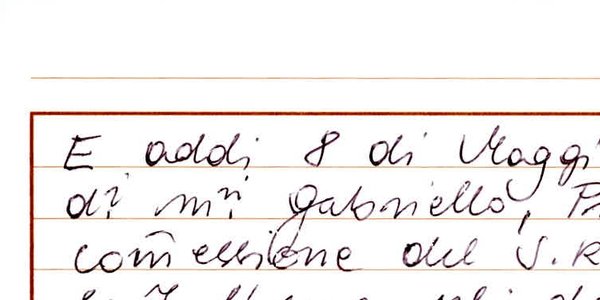 E addi 8 di Maggi
di mr Gabriello,
comessione del S.R